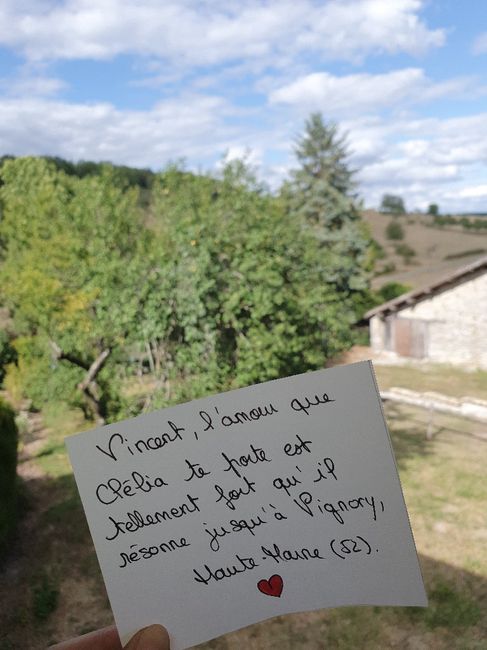 Vincent, l'amour que
Clélia te porte est
tellement fort qu'il
résonne jusqu'à Vignory,
Haute-Marne (52).